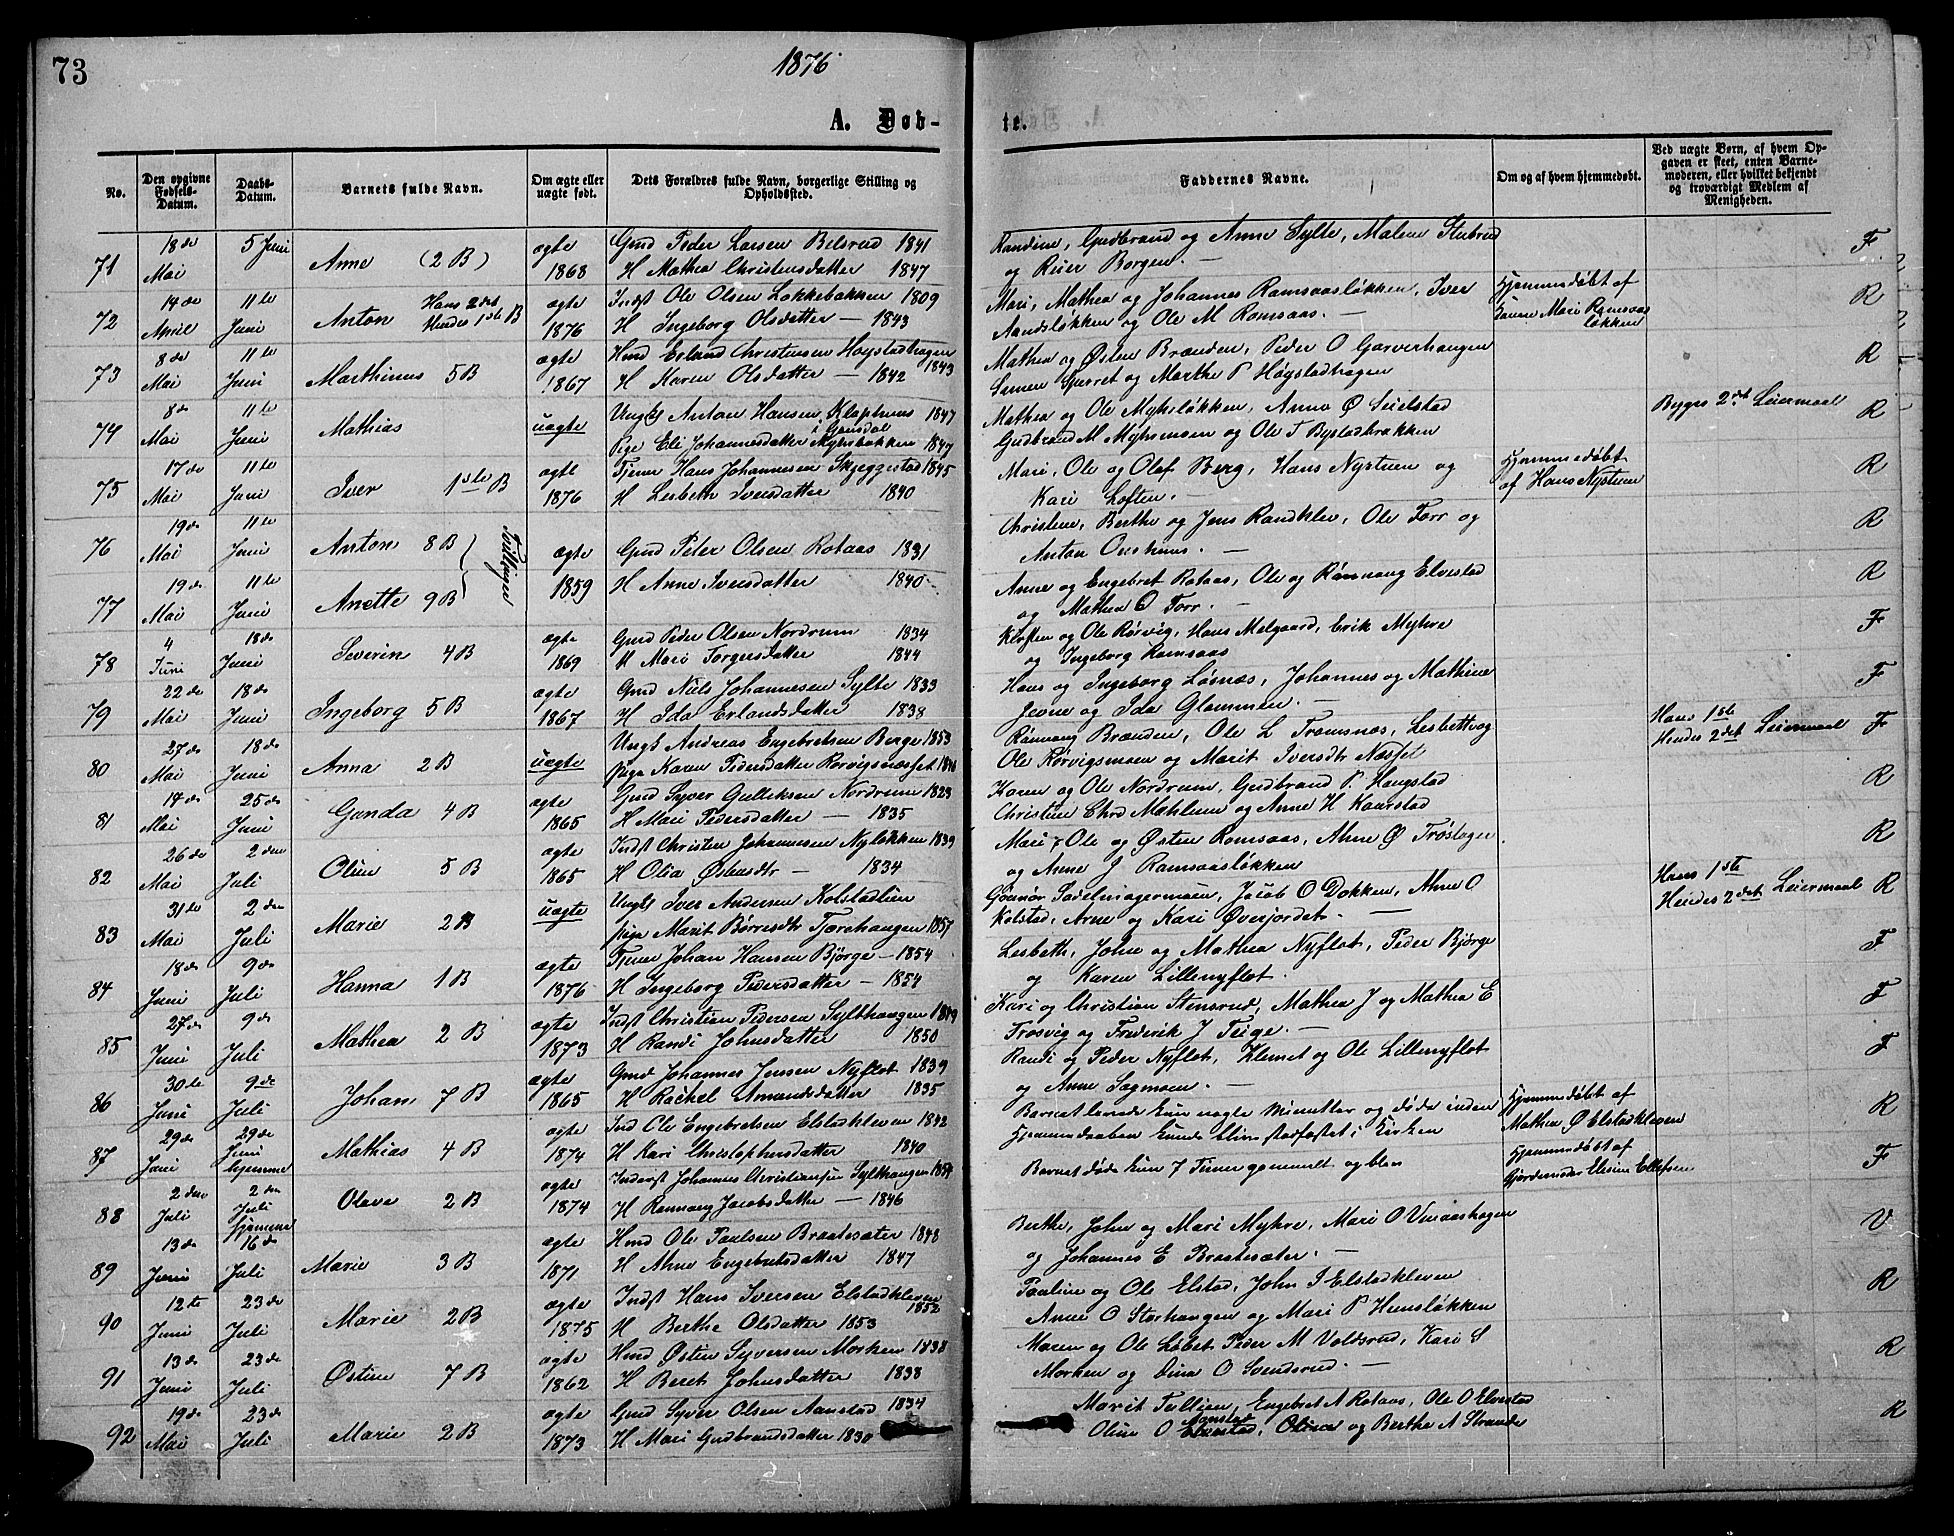 73
1876
A. Døb-
te.
No.
Den opgivne Fødsels-Datum.
Daabs-Datum.
Barnets fulde Navn.
Om ægte eller uægte født.
Dets Forældres fulde Navn, borgerlige Stilling og Opholdssted.
Faddernes Navne.
Om og af hvem hjemmedøbt.
Ved uægte Børn, af hvem Opgaven er skeet, enten Barnemoderen, eller hvilket bekjendt og troværdigt Medlem af Menigheden.
71 18de Mai 5 Juni Anne (2 B) ægte 1868 Gmd Peder Larsen Belsrud 1841
H Mathea Christensdatter 1847
Randine, Gudbrand og Anne Sylte, Malene Stubrud
og Reier Borgen. — F
72 14de April 11te Juni Anton Hans 2det Hendes 1ste B ægte 1876 Indst Ole Olsen Løkkebakken 1809
H Ingeborg Olsdatter — 1843
Mari, Mathea og Johannes Ramsaasløkken, Iver
Aandsløkken og Ole M Ramsaas. —
Hjemmedøbt af
Mari Ramsaas
løkken R
73 8de Mai 11te Juni Marthinus 5 B ægte 1867 Hmd Erland Christensen Høystadhagen 1843
H Karen Olsdatter — 1842
Mathea og Østen Brænden, Peder O Garverhaugen
Simen Sperret og Marthe P Høgstadhagen R
74 8de Mai 11te Juni Mathias uægte Ungk Anton Hansen Klaphuus 1847
i Gausdal
Pige Eli Johannesdatter Myhrbakken 1847
Mathea og Ole Myhrløkken, Anne Ø Seielstad
Gudbrand M Myhrmoen og Ole T Bystadbakken
Begges 2det Leiermaal R
75 17de Mai 11te Juni Iver 1ste B ægte 1876 Tjener Hans Johannesen Skjeggestad 1845
H Lisbeth Iversdatter 1840
Mari, Ole og Olof Berg, Hans Nystuen og
Kari Loften. —
Hjemmedøbt
af Hans Nystuen R
76 19de Mai 11te Juni Anton 8 B Tvillinger ægte Gmd Peter Olsen Rotaas 1831
Christine, Berthe og Jens Randklev, Ole Torr og
Anton Onshuus. — R
77 19de Mai 11te Juni Anette 9 B 1859 H Anne Iversdatter 1840
Anne og Engebret Rotaas, Ole og Rønnaug Elvestad
og Mathea O Torr. — R
78 4 Juni 18de Juni Severin 4 B ægte 1869 Gmd Peder Olsen Nordrum 1834
H Mari Torgersdatter 1844
Kirsten og Ole Rørvig, Hans Melgaard, Erik Myhre
og Ingeborg Ramsaas F
79 22de Mai 18de Juni Ingeborg 5 B ægte 1867 Gmd Niels Johannesen Sylte 1833
H Ida Erlandsdatter 1838
Hans og Ingeborg Løsnæs, Johannes og Mathine
Jevne og Ida Glommen. — F
80 27de Mai 18de Juni Anna 2 B uægte Ungk Andreas Engebretsen Berge 1853
Pige Karen Pedersdatter Rørvignæsset
Rønnaug Brænden, Ole L Tromsnes, Lisbeth og
Ole Rørvigsmoen og Marit Iversdtr Næsset
Hans 1ste
Hendes 2det Leiermaal F
81 14de Mai 25de Juni Gunda 4 B ægte 1865 Gmd Syver Gulliksen Nordrum 1823
H Mari Pedersdatter — 1835
Karen og Ole Nordrum, Gudbrand P. Haugstad
Christine Chrd Mæhlum og Anne H Kaarstad R
82 26de Mai 2den Juli Oline 5 B ægte 1865 Indst Christen Johannesen Nyløkken 1839
H Olia Østensdtr — 1834
Mari, Ole og Østen Ramsaas, Anne Ø Trøstager
og Anne J Ramsaasløkken R
83 31te Mai 2den Juli Marie 2 B uægte Ungk Iver Andersen Kolstadlien
Pige Marit Børresdtr Tjærehaugen 1857
Gunnor Sadelmagermoen, Jacob O Dokken, Anne O
Kolstad, Arne og Kari Øverjordet. —
Hans 1ste
Hendes 2det Leiermaal R
84 18de Juni 9de Juli Hanna 1 B ægte 1876 Tjener Johan Hansen Bjørge — 1854
H Ingeborg Pedersdatter — 1854
Lisbeth, John og Mathea Nyflot, Peder Bjørge
og Karen Lillenyflot. — F
85 27de Juni 9de Juli Mathea 2 B ægte 1873 Indst Christian Pedersen Sylthaugen 1849
H Randi Johnsdatter 1850
Kari og Christian Stensrud, Mathea J og Mathea E
Trosvig og Frederik J Teige. — F
86 30te Juni 9de Juli Johan 7 B ægte 1865 Gmd Johannes Jensen Nyflot 1839
H Rachel Amundsdatter 1835
Randi og Peder Nyflot, Klemet og Ole Lillenyflot
og Anne Sagmoen. — F
87 29de Juni 29de Juni hjemme Mathias 4 B ægte 1874 Ind Ole Engebretsen Elstadkleven 1842
H Kari Christophersdatter 1840
Barnet levede kun nogle Minutter og døde inden
Hjemmedaaben kunde blive stadfæstet i Kirken
Hjemmedøbt af
Mathea Ø Elstadkleven R
88 2den Juli 2den Juli hjemme Oleve 2 B ægte 1874 Inderst Johannes Christiansen Sylthaugen
H Rønnaug Jacobsdatter — 1846
Barnet døde kun 7 Timer gammelt og blev
Hjemmedøbt af
Gjordemoder Elisine Ellefsen F
89 13de Juni 16de Juli Marie 3 B ægte 1871 Hmd Ole Paulsen Braatesæter 1848
H Anne Engebretsdatter 1847
Berthe, John og Mari Myhre, Mari O
og Johannes E Braatesæter. — V
90 12te Juni 23de Juli Marie 2 B ægte 1875 Indst Hans Iversen Elstadkleven 1852
H Berthe Olsdatter 1853
Pauline og Ole Elstad, John I Elstadkleven
Anne O Storhaugen og Mari P Hemsløkken R
91 13de Juni 23de Juli Østine 7 B ægte 1862 Hmd Østen Syversen Morken 1838
H Beret Johnsdatter 1838
Maren og Ole Løbet, Peder M Voldsrud, Kari S
Morken og Dina O Svendsrud. — R
92 19de Mai 23de Juli Marie 2 B ægte 1873 Gmd Syver Olsen Aanstad 1834
H Mari Gudbrandsdatter 1830
Marit Tullien, Engebret A Rotaas, Ole O Elvestad
Aanstad
Oline O Elvestad, Olina og Berthe A Strande R